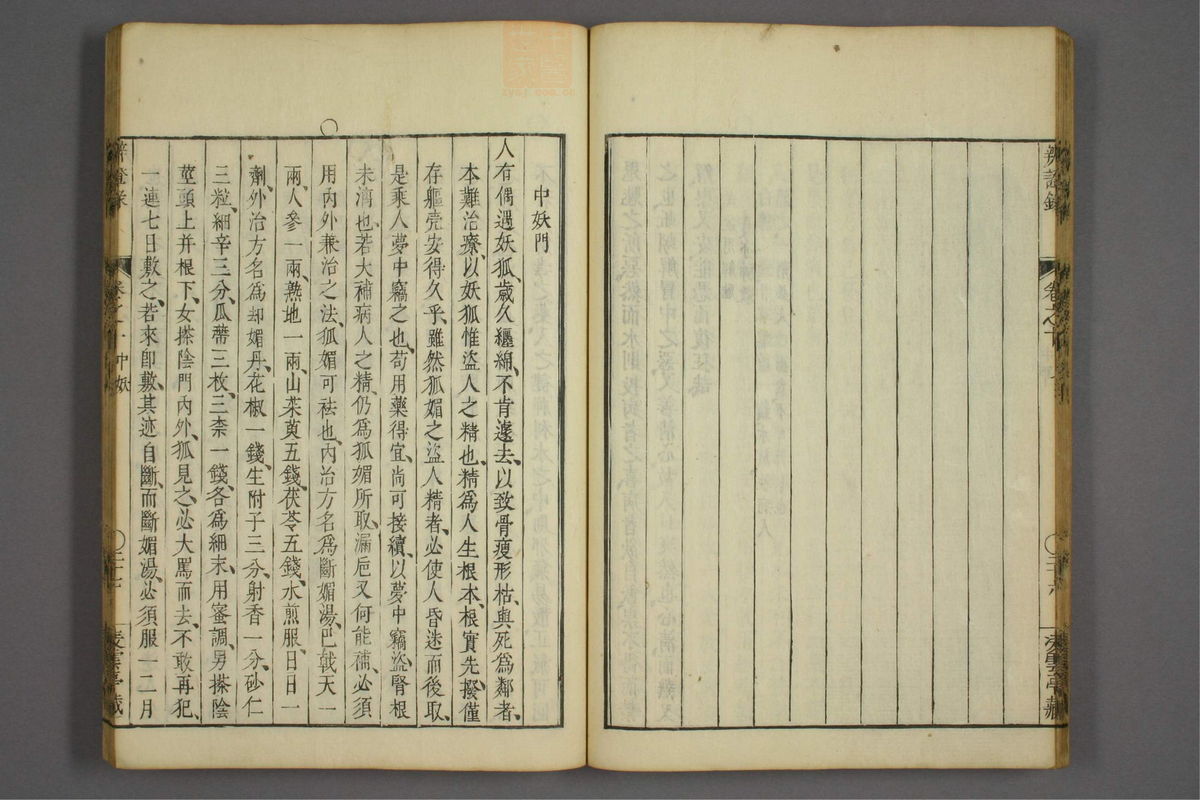 辨證錄
卷之十
凌雲亭藏
中妖門
人有偶遇妖狐、歲久纏綿、不肯遽去、以致骨瘦形枯、與死爲鄰者、
本難治療、以妖狐惟盜人之精也、精爲人生根本、根實先撥、僅
存軀壳、安得久乎、雖然狐媚之盜人精者、必使人昏迷而後取、
是乘人夢中竊之也、苟用藥得宜、尚可接續、以夢中竊盜、腎根
未漓也、若大補病人之精、仍爲狐媚所取、漏巵又何能補、必須
用內外兼治之法、狐媚可祛也、內治方名爲斷媚湯、巴戟天一
兩、人參一兩、熟地一兩、山茱萸五錢、茯苓五錢、水煎服、日日一
劑、外治方名爲却媚丹、花椒一錢、生附子三分、射香一分、砂仁
三粒、細辛三分、瓜蒂三枚、三柰一錢、各爲細末、用蜜調、男搽陰
莖頭上并根下、女搽陰門內外、狐見之、必大罵而去、不敢再犯、
一連七日敷之、若來卽敷、其迹自斷、而斷媚湯、必須服一二月
辨證錄
卷之十 中妖
三十七
凌雲亭藏